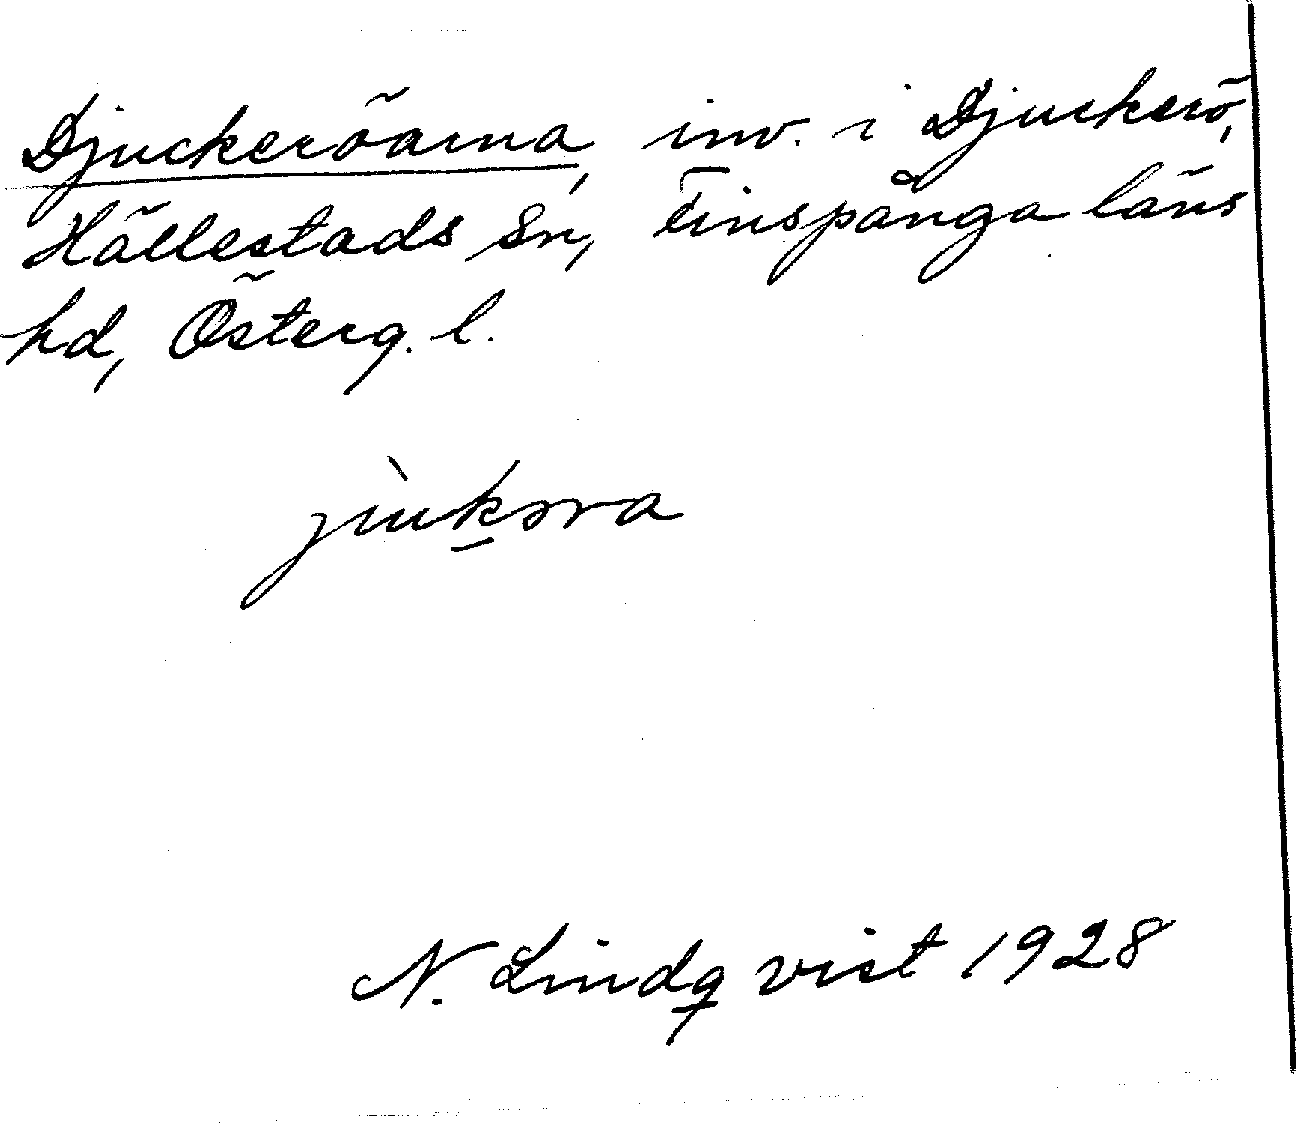 Djuckeröarna, inv. i Djuckerö,
Hällestads sn, Finspånga läns
hd, Österg. l.
jùkəra
N. Lindqvist 1928